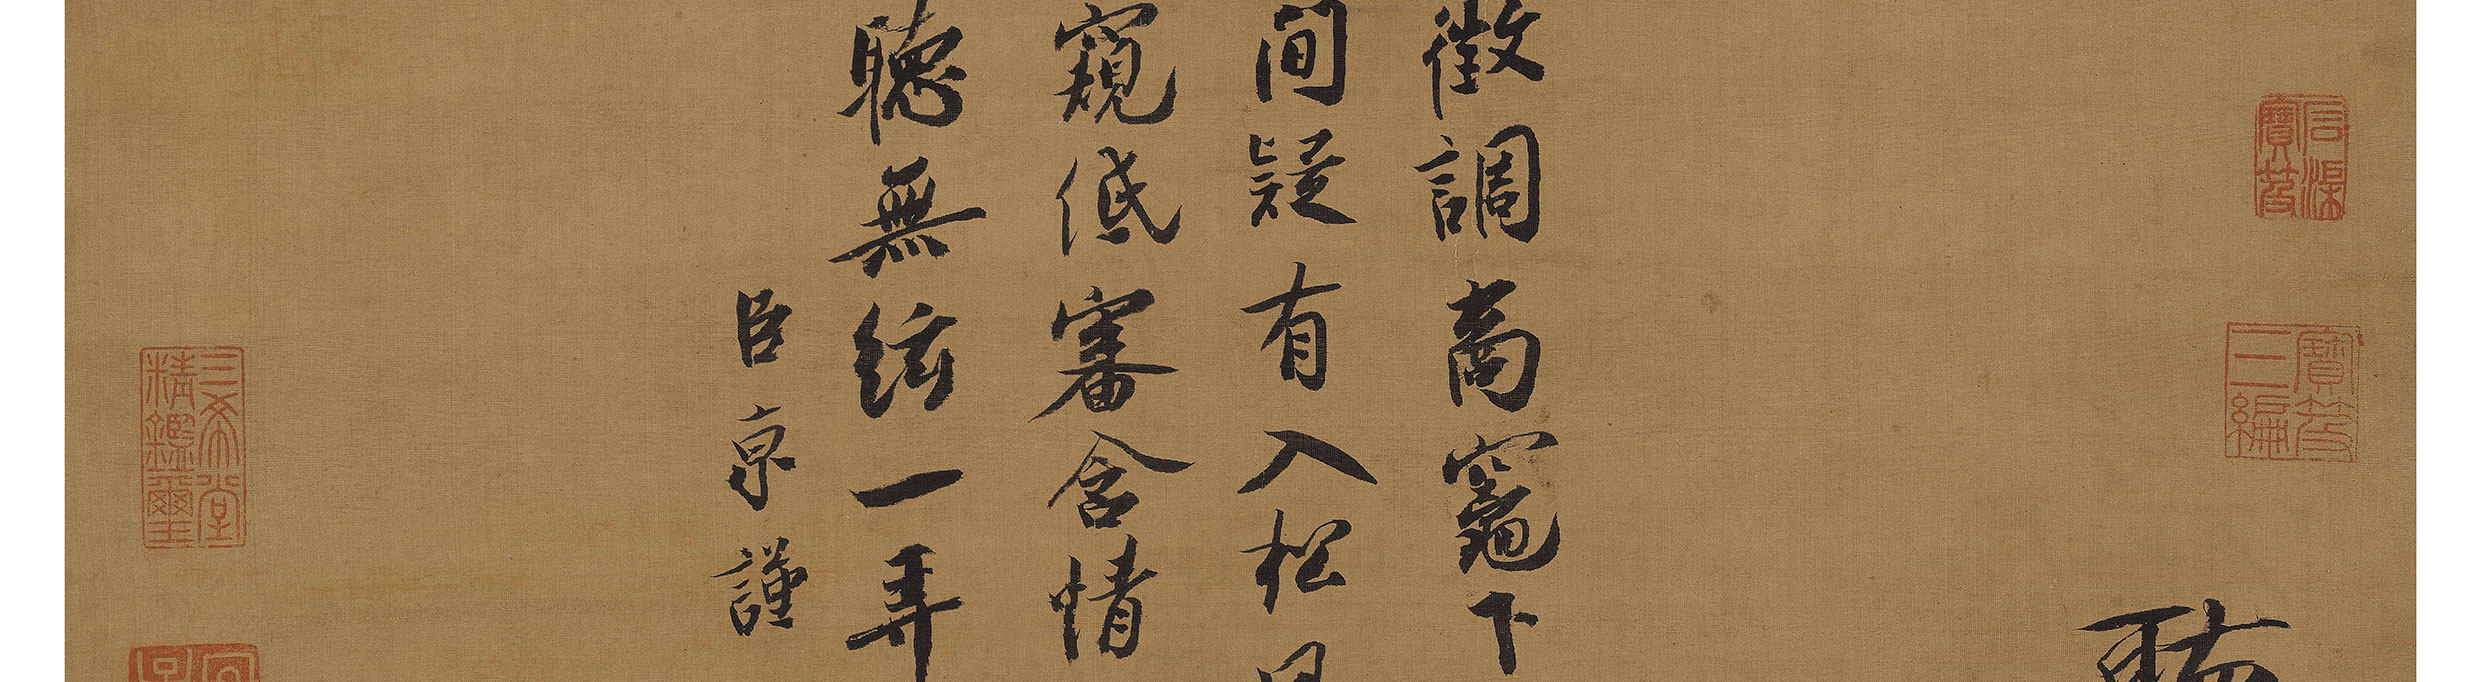 石渠寶笈
寶笈三編
徵調商竈下
間疑有入松
窺低審含情
聽無絃一弄
臣京謹
三希堂精鑑璽